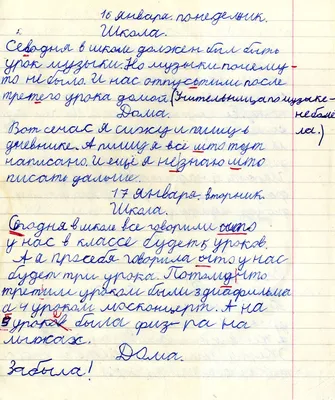 16 января понедельник.
Школа.
Севодня в школе должен был быть
урок музыки. Но музыки почему-
то не было. И нас отпустили после
третего урока домой (Учительница по музыке-
Дома. не была
Вот сечас я сижу и пишу в
дневнике. А пишу я всё што тут
написано. И ещё я незнаю што
писать дальше.
17 января, вторник.
Школа.
Сегодня в школе все говорили што
у нас в классе будет 5 уроков.
А я про себя говорила што у нас
будет три урока. Потому что
третим уроком были 3 диафильма
а 4 уроком москонцерт. А на
5 уроков была физ-ра на
лыжах.
Дома.
Забыла!